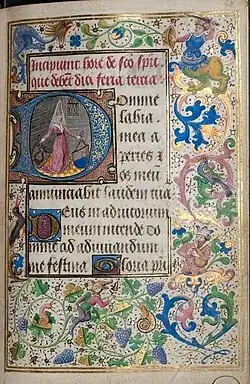 Incipiunt hore de sco spu
que debet dici feria tercia
Domine
labia
mea a
peries ⁊
os meu
annunciabit laudem tua
Deus in adiutorium
meum intende do
mine ad adiuvandum
me festina Gloria pri